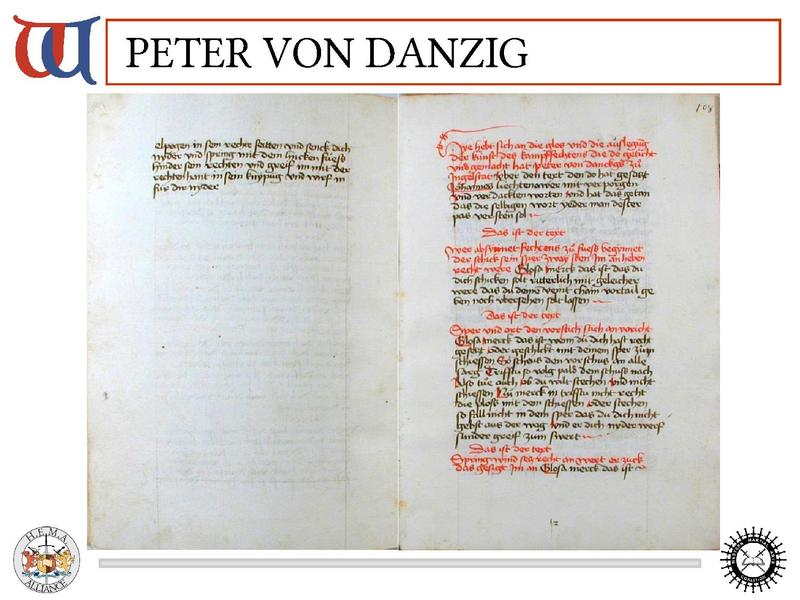 PETER VON DANZIG
108
elpogen in sein rechte seitten vnd senck dich
nyder vnd spring mit dem lincken fuess
hinder sein rechten vnd greif im mit der
rechten hant in sein knypüg vnd wirf in
für dir nyder
Hye hebt sich an die glos vnd die auslegüg
der kunst des kampffechtens die do geticht
vnd gemacht hat peter von danckgs zu
Ingelstat vber den text den do hat gesatzt
Johannes liechtenawer mit verporgen
vnd verdackten worten vnd hat das getan
das die selbigen wort yeder man dester
pas versten sol
Das ist der text
Wer absynnet fechtens zu fuess begynnet
der schick sein sper zway sten im an heben
recht were Glosa merck das ist das du
dich schicken solt ritterlich mit geleicher
were das du deine veint chain vortail ge
ben noch vbersehen solt lassen
Das ist der text
Sper vnd ort den vorstich stich an voricht
Glosa merck das ist wenn du dich hast recht
gesetzt oder geschickt mit deinem sper zum
schiessen So scheus den vorschus an alle
sarg Trifstu so volg pald dem schuss nach
Also tue auch ob du wilt stechen vnd nicht
schiessen Vnd merck in trifstu nicht recht
die plöss mit dem schiessen oder stechen
so still nicht in dem sper das du dich nicht
gebst aus der wag vnd er dich nyder werf
sunder greif zum swert
Das ist der text
Spring wind setz recht an wert er zuck
das gesigt im an Glosa merck das ist
H.E.M.A.
ALLIANCE